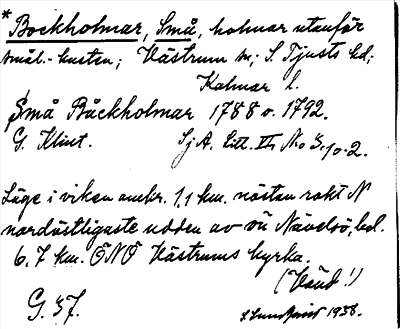 * Bockholmar, Små, holmar utanför
smål.-kusten; Västrum sn; S. Tjusts hd;
Kalmar l.
Små Båckholmar 1788 o. 1792.
G. Klint. SjA. Litt. III No 3, 10-2.
Läge i viken omkr. 1,1 km. nästan rakt N
nordöstligaste udden av ön Nävelsö, bel.
6,7 km. ÖNÖ Västrums kyrka.
(Vänd!)
G. 37. 1938.